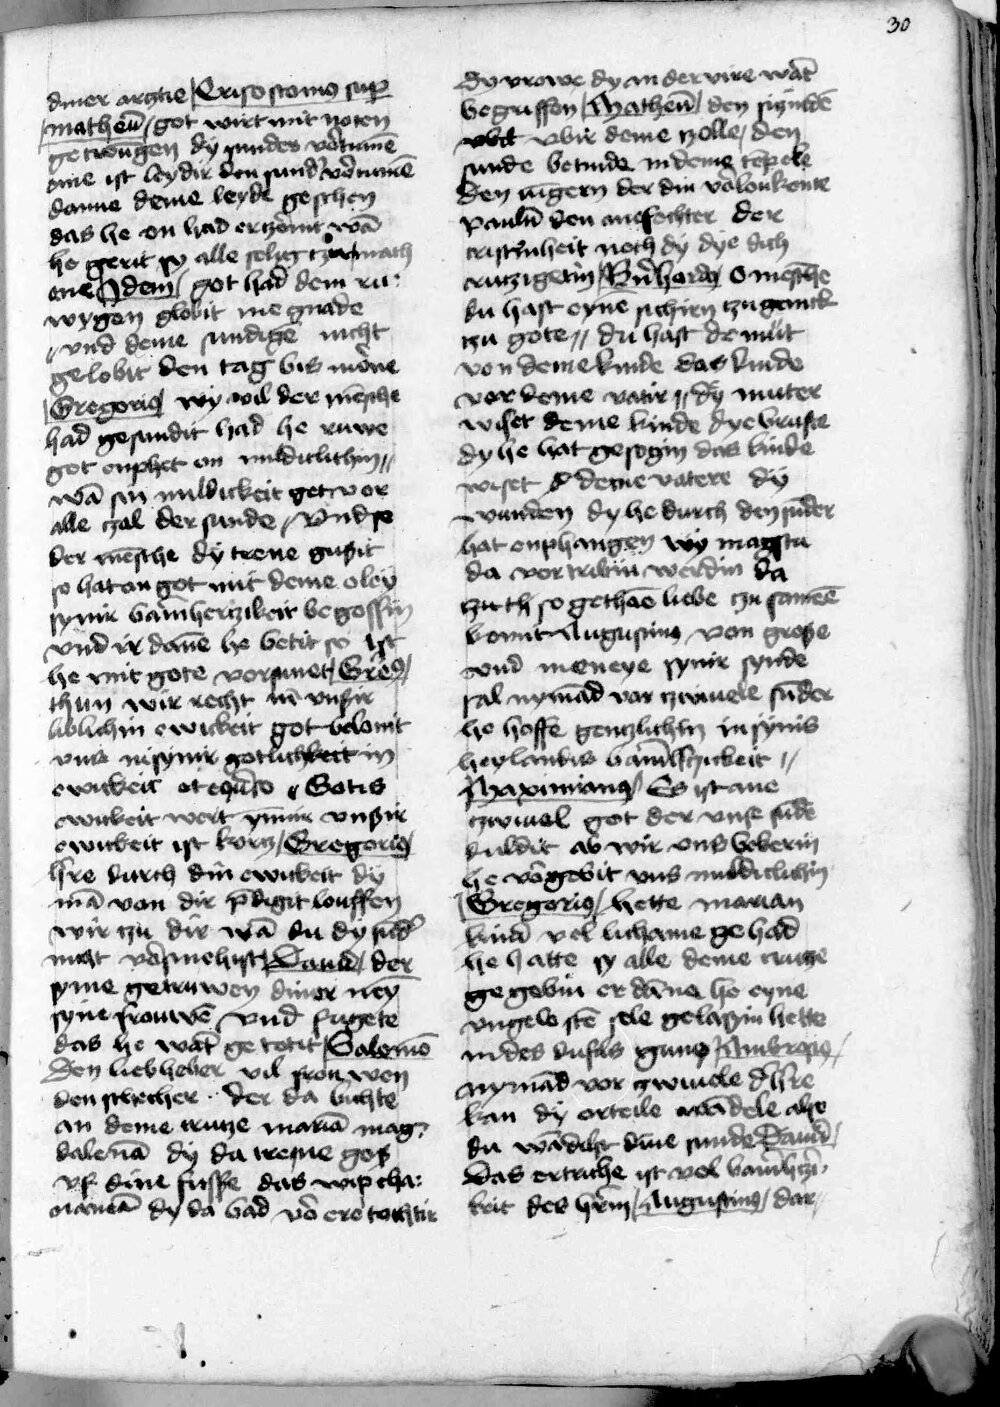 30
diner arztie Crisostomus sup
matheū got wirt mit noten
getwungen dy sundes
ome ist leydir den
danne deme leyde geschen
das he on had erzornit wā
he gerit sy alle selig mach
ene Idem got had dem ru:
wygen globit me gnade
vnd deme sundige nicht
gelobit den tag bis morne
Gregoriꝯ wy vil der mēsche
had gesundit had he ruwe
got enphet on mildiclichin
wā sin mildickeit get vor
alle czal der sunde Vnd so
der mēsche dy trene gusit
so hat en got mit deme oley
synir barmhertzikeit begossin
vnd danne he betit so ist
he mit gote vorsunet Greg
thun wir recht in vnsir
liblichin ewickeit got belonit
vns in synir gotlich in
ewickeit et Gotis
ewickeit wert vnsir
ewickeit ist kortz Gregoriꝯ
h're durch din ewickeit dy
mā von dir p̄digit louffen
wir czu dir wā du dy sūd'
nicht vorsmehist Dauid der
syme getruwen diner
syne frouwē vnd fugete
das he wart getotit Salemō
Den liebheber vil frouwen
den schecher der da bichte
an deme crutze mariā mag:
dalenā dy da trene gos
vf dine fusse das wip cha:
naneā dy da bad vor ere tochtir
Dy vrowe dy in der wart
begriffen Matheū den
vbir deme czolle den
sunde in deme tēpele
den iungern der din vorloukente
paulū den anefechter der
cristinheit noch dy dye dich
crutzigetin Bernhardꝯ O mēsche
du hast eyne sichirn czugank
czu gote du hast demut
von deme kinde das kinde
vor deme vatir dy muter
wiset deme kinde dye bruste
dy he hat gesogin das kinde
wiset deme vatere dy
wunden dy he durch den sunder
hat enphangen wy magstu
da vortribin werdin da
so gethāe liebe czu samene
komit Augustinꝯ vom grose
vnd meneye synir synde
sal nymād vor zwiuele sunder
he hoffe genczlichin in synis
heylandis barmherczickeit
Maximianꝯ Es ist ane
czwiuel got der vnse sūde
duldit ab wir vns bekerin
he vorgebit vns mildiclichin
Gregoriꝯ hette marian
kind vel lichame gehad
he hatte sy alle deme crutze
gegebin er danne he eyne
vngeloste sele gelasin hette
in des dufils Ambrosiꝯ
nymād vor zwiuele d' h're
kan dy orteile wādele also
du wādelst dine sunde Dauid
Das ertriche ist vol barmherczi:
keit des h'rin Augustinꝯ dar